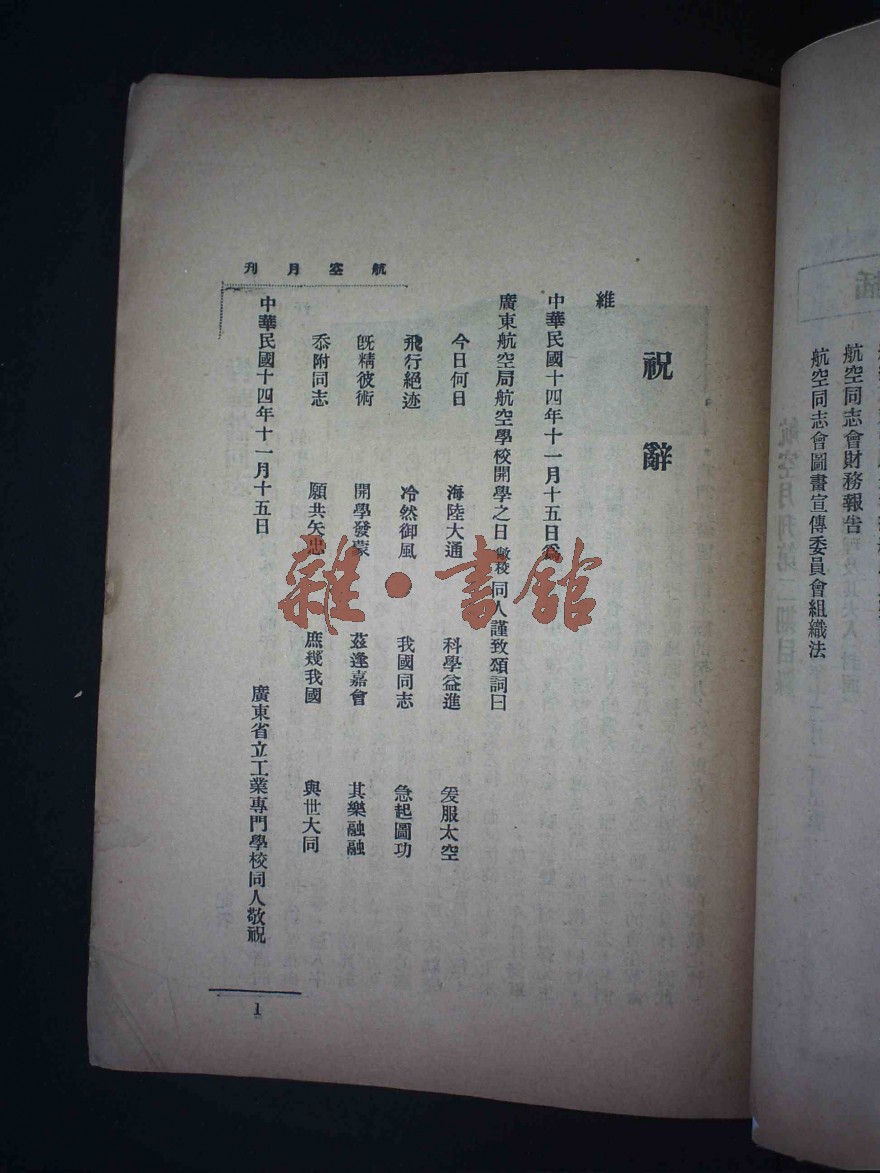 航空同志會財務報告
航空同志會圖畫宣傳委員會組織法
祝辭
維
中華民國十四年十一月十五日爲
廣東航空局航空學校開學之日敝校同人謹致頌詞曰
今日何日 海陸大通 科學益進 爰服太空
飛行絕迹 冷然御風 我國同志 急起圖功
旣精彼術 開學發蒙 茲逢嘉會 其樂融融
忝附同志 願共矢忠 庶幾我國 與世大同
中華民國十四年十一月十五日 廣東省立工業專門學校同人敬祝
航空月刊
1
雜·書館